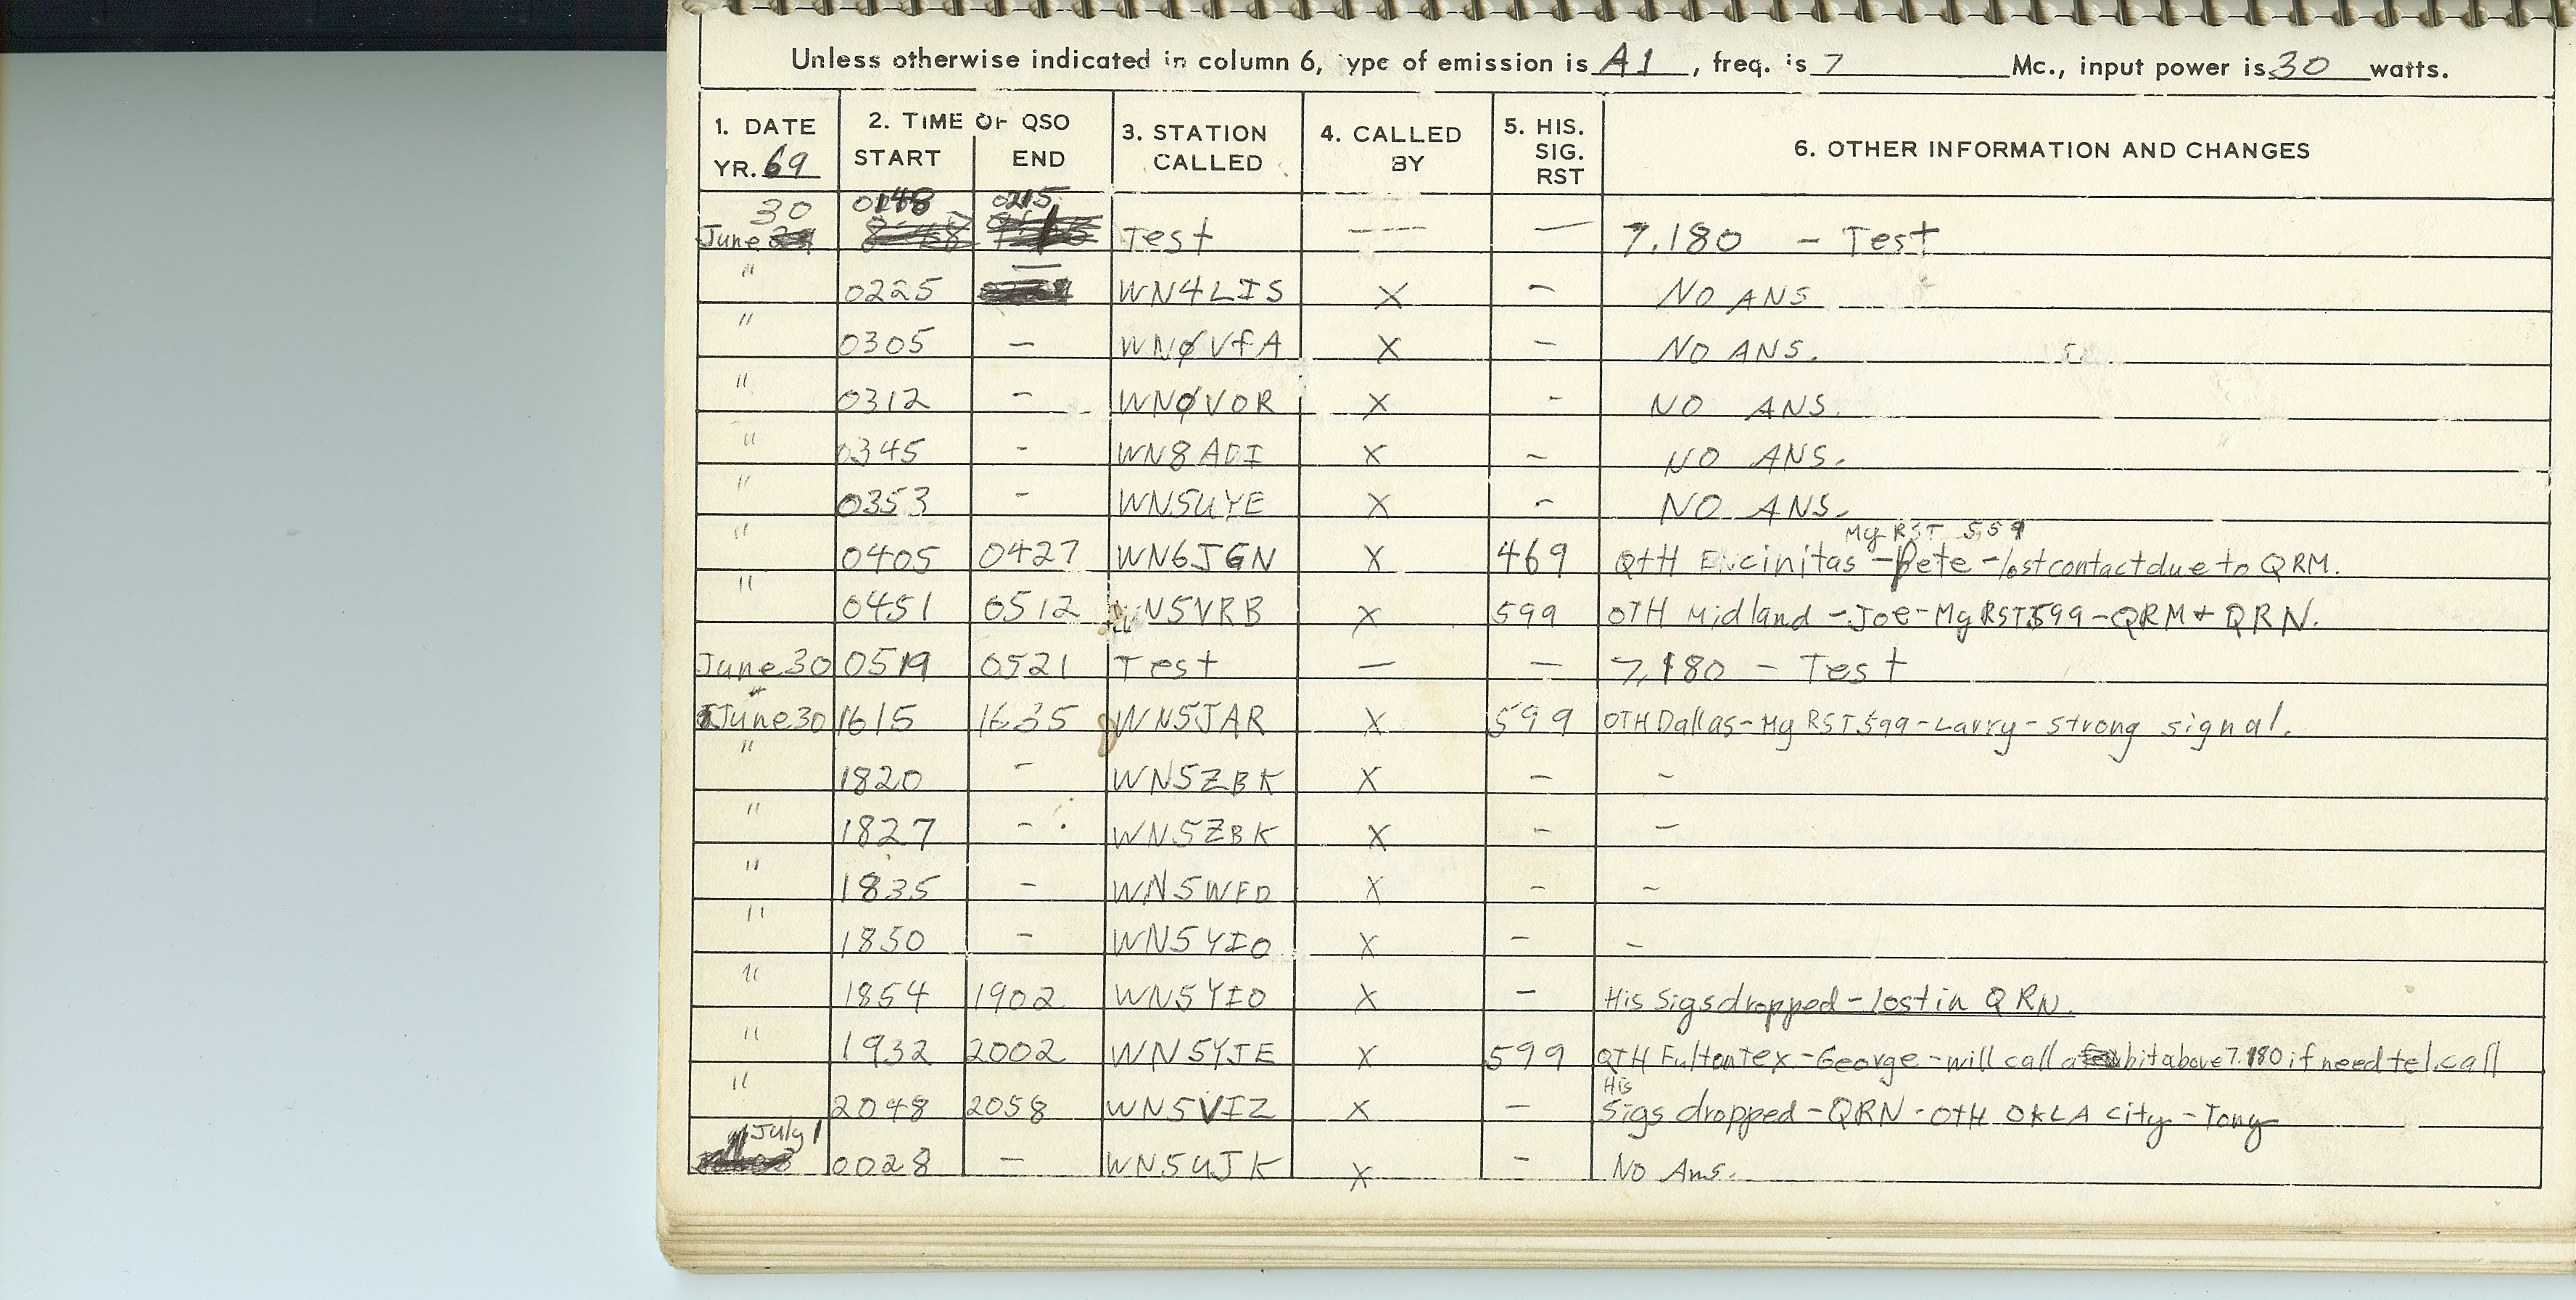 Unless otherwise indicated in column 6, type of emission is A1, freq. is 7 Mc., input power is 30 watts.
1. DATE YR. 69 2. TIME OF QSO START END 3. STATION CALLED 4. CALLED BY 5. HIS. SIG. RST 6. OTHER INFORMATION AND CHANGES
June 30 0148 0215 Test — — 7.180 - Test
" 0225 — WN4LIS X - NO ANS
" 0305 - WNØVFA X - NO ANS.
" 0312 - WNØVOR X - NO ANS.
" 0345 - WN8ADI X - NO ANS.
" 0353 - WN5UYE X - NO ANS.
My RST 559
" 0405 0427 WN6JGN X 469 QTH Encinitas - Pete - lost contact due to QRM.
" 0451 0512 WN5VRB X 599 QTH Midland - Joe - My RST 599 - QRM + QRN.
June 30 0519 0521 Test — — 7.180 - Test
June 30 1615 1635 WN5JAR X 599 QTH Dallas - My RST 599 - Larry - strong signal.
" 1820 - WN5ZBK X - -
" 1827 - WN5ZBK X - -
" 1835 - WN5WFD X - -
" 1850 - WN5YIO X - -
" 1854 1902 WN5YIO X - His Sigs dropped - lost in QRN.
" 1932 2002 WN5YJE X 599 QTH Fulton Tex - George - will call a bit above 7.180 if need tel. call
" 2048 2058 WN5VIZ X - His Sigs dropped - QRN - QTH OKLA City - Tony
July 1 0028 - WN5UJK X - No Ans.